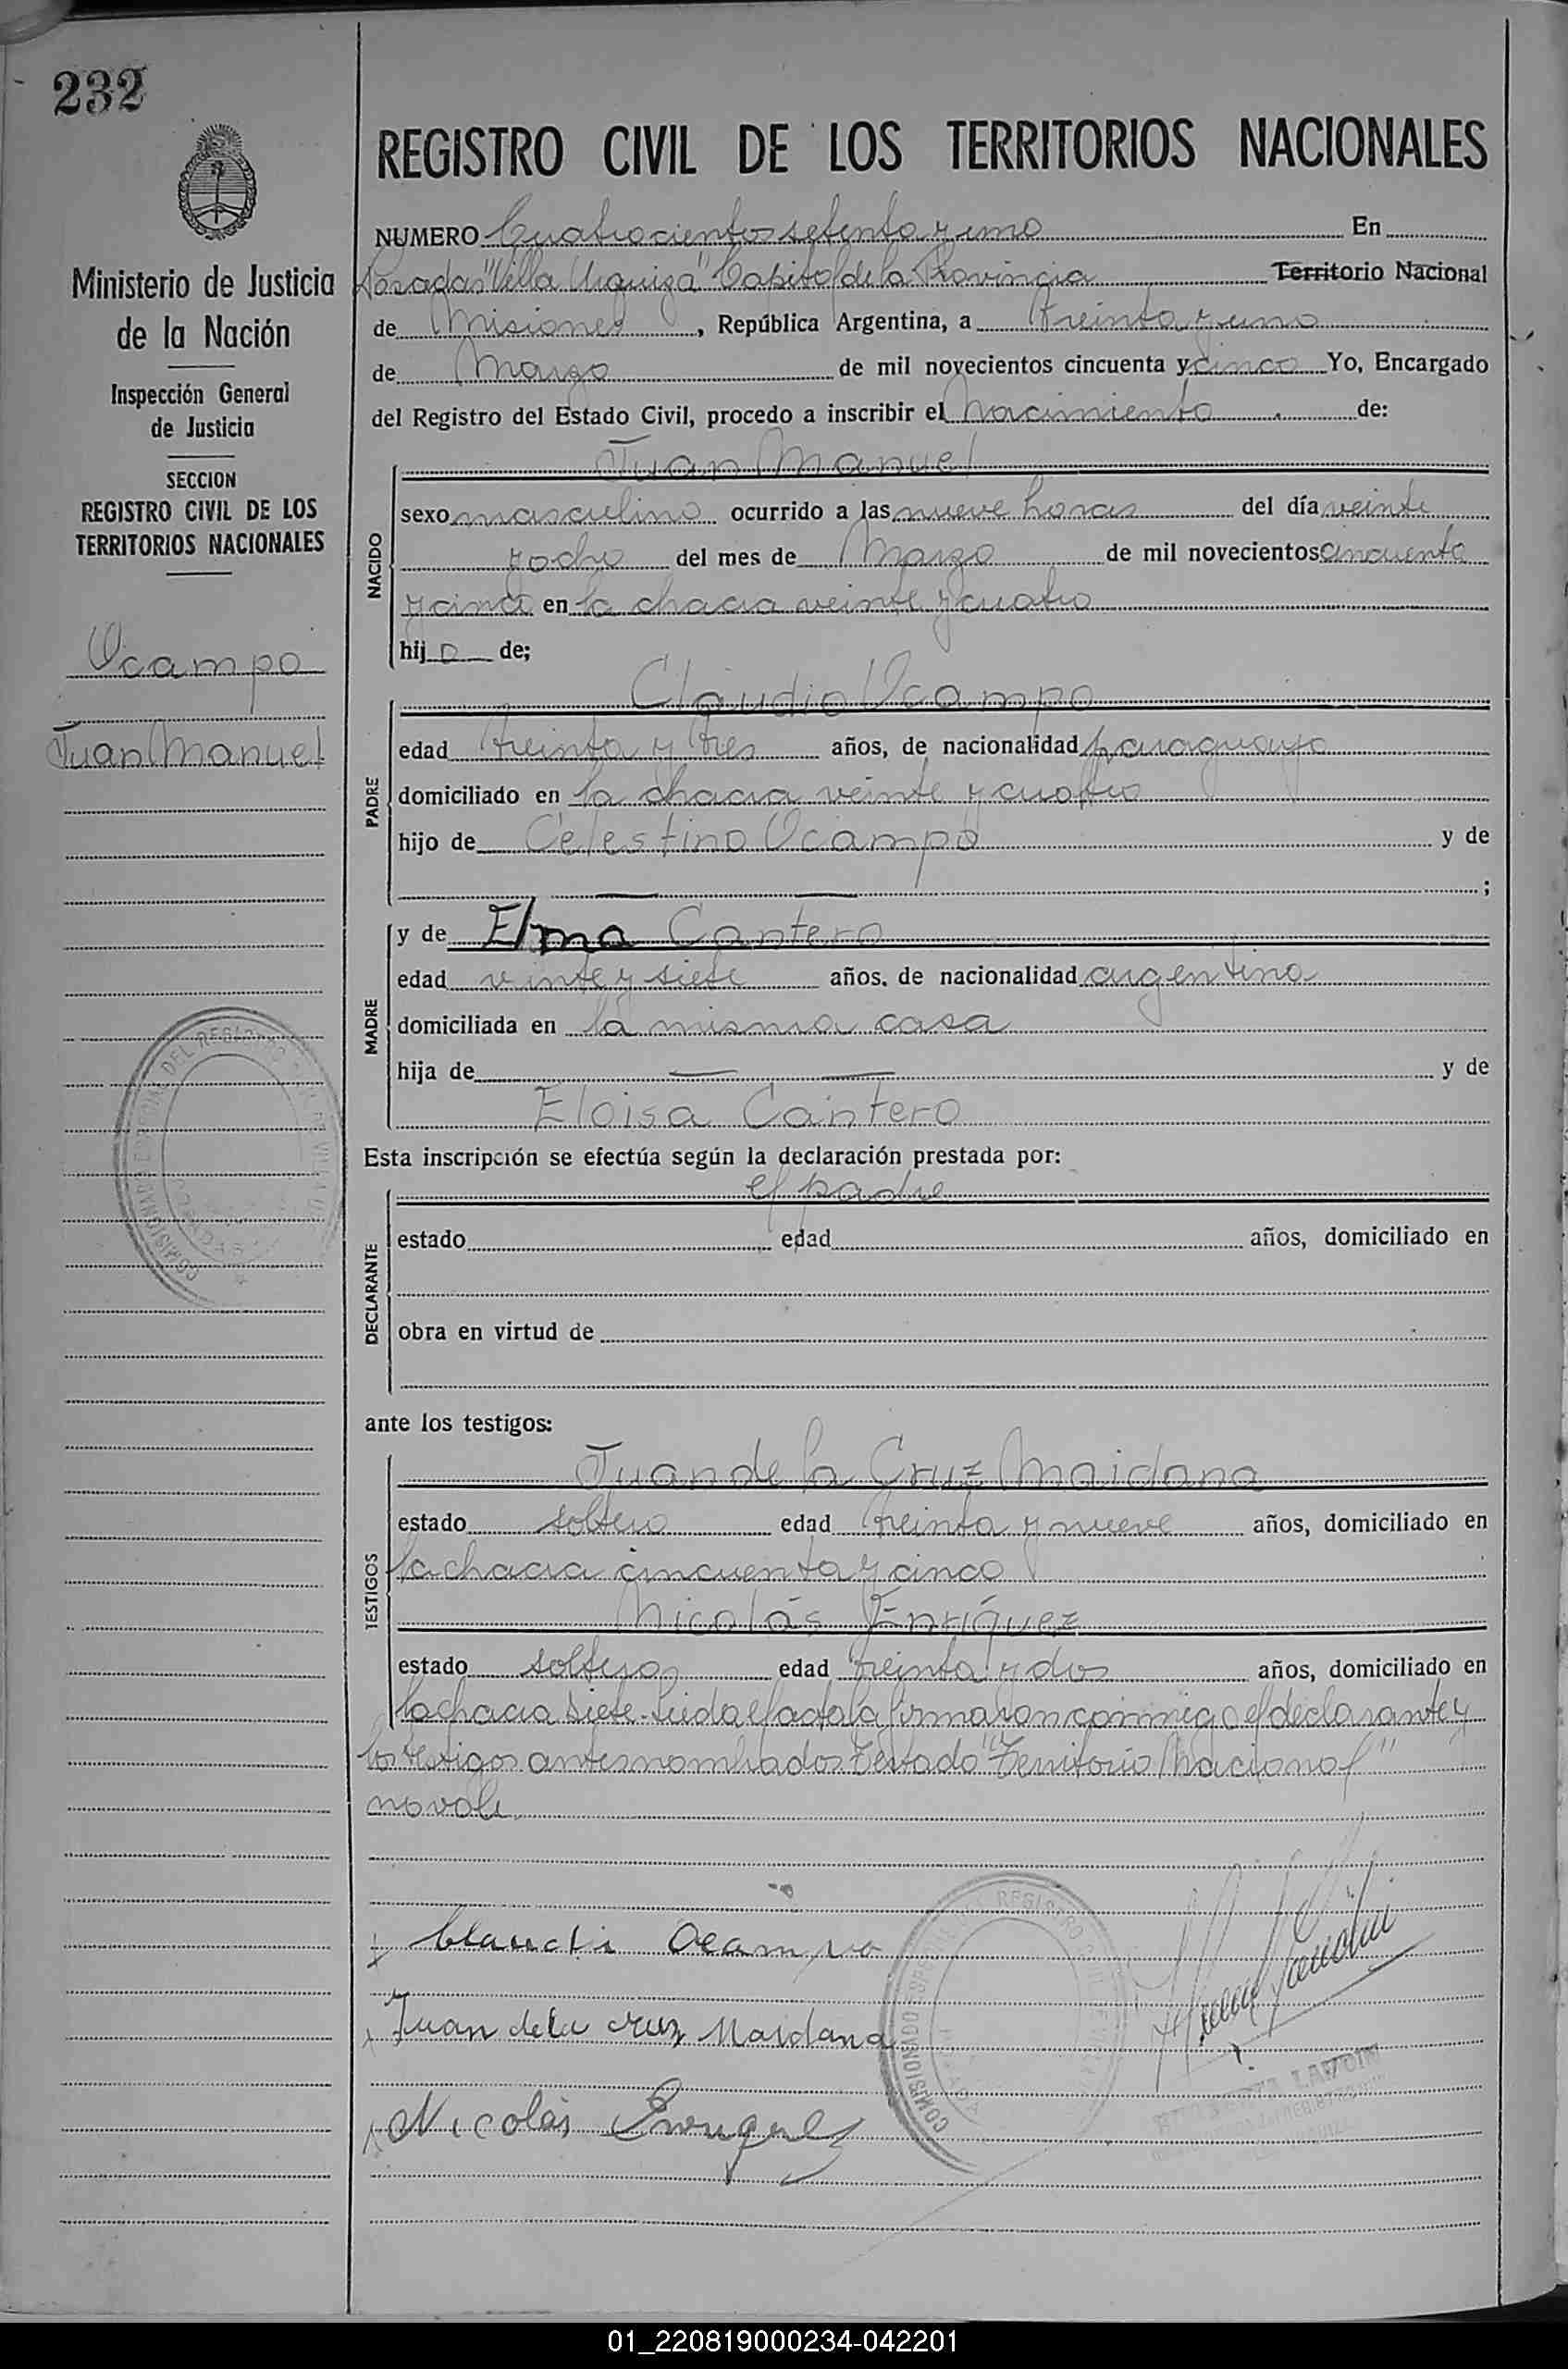 232
REGISTRO CIVIL DE LOS TERRITORIOS NACIONALES
Ministerio de Justicia
de la Nación
Inspección General
de Justicia
SECCION
REGISTRO CIVIL DE LOS
TERRITORIOS NACIONALES
Ocampo
Juan Manuel
NUMERO Cuatrocientos setenta y uno En
Posadas "Villa Urquiza" Capital de la Provincia Territorio Nacional
de Misiones, República Argentina, a Treinta y uno
de Marzo de mil novecientos cincuenta y cinco Yo, Encargado
del Registro del Estado Civil, procedo a inscribir el Nacimiento de:
NACIDO
Juan Manuel
sexo masculino ocurrido a las nueve horas del día veinte
y ocho del mes de Marzo de mil novecientos cincuenta
y cinco en la chacra veinte y cuatro
hij o de;
PADRE
Claudio Ocampo
edad treinta y tres años, de nacionalidad paraguayo
domiciliado en la chacra veinte y cuatro
hijo de Celestino Ocampo y de
;
MADRE
y de Elma Cantero
edad veinte y siete años, de nacionalidad argentina
domiciliada en la misma casa
hija de y de
Eloisa Cantero
Esta inscripción se efectúa según la declaración prestada por:
DECLARANTE
el padre
estado edad años, domiciliado en
obra en virtud de
ante los testigos:
TESTIGOS
Juan de la Cruz Maidana
estado soltero edad treinta y nueve años, domiciliado en
la chacra cincuenta y cinco
Nicolás Enríquez
estado soltero edad treinta y dos años, domiciliado en
la chacra siete. Leida el acta la firmaron conmigo el declarante y
los testigos antes nombrados. Testado "Territorio Nacional"
no vale.
Claudio Ocampo
Juan de la Cruz Maidana
Nicolás Enriquez
COMISIONADO REGISTRO
01_220819000234-042201